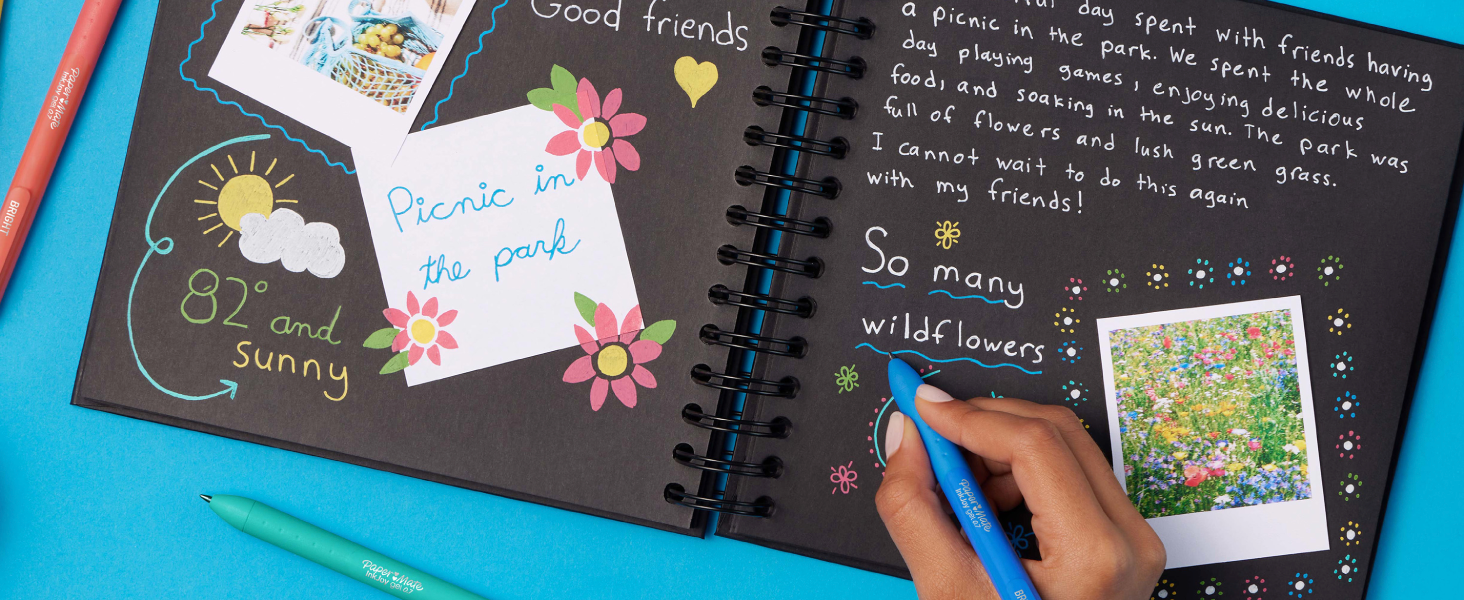 Good friends
Picnic in
the park
82° and
sunny
day spent with friends having
a picnic in the park. We spent the whole
day playing games, enjoying delicious
food, and soaking in the sun. The park was
full of flowers and lush green grass.
I cannot wait to do this again
with my friends!
So many
wildflowers
Paper Mate
InkJoy Gel 0.7
BRIGHT
Paper Mate
InkJoy Gel 0.7
Paper Mate
InkJoy Gel 0.7